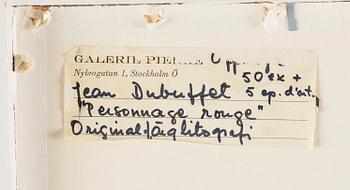 GALERIE PIERRE
Nybrogatan 1, Stockholm Ö
50 ex +
Jean Dubuffet 5 ep. d'art.
"Personnage rouge"
Originalfärglitografi